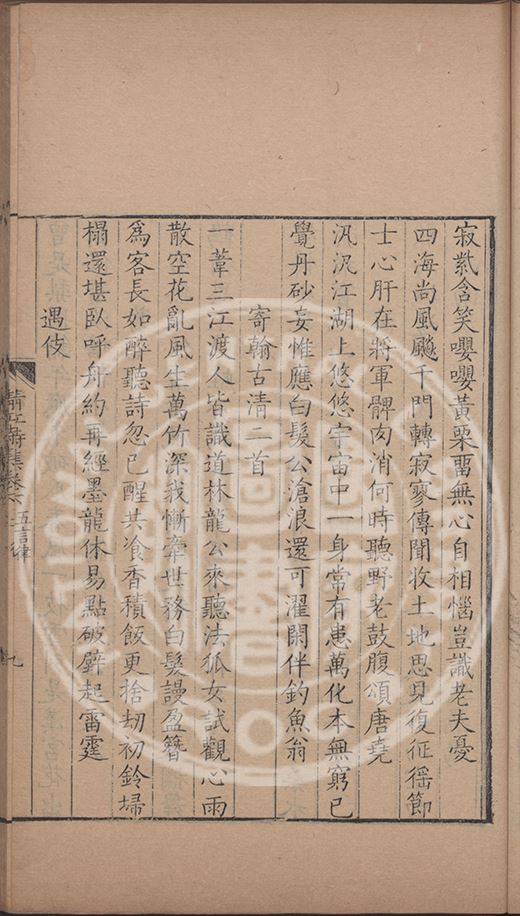 寂氣含笑嚶嚶黃栗畱無心自相惱豈識老夫憂
四海尚風飈千門轉寂寥傳聞收土地思見復征徭節
士心肝在將軍髀肉消何時聽野老鼓腹頌唐堯
汎汎江湖上悠悠宇宙中一身常有患萬化本無窮已
覺丹砂妄惟應白髮公滄浪還可濯閑伴釣魚翁
寄翰古清二首
一葦三江渡人皆識道林龍公來聽法狐女試觀心雨
散空花亂風生萬竹深我慚牽世務白髮謾盈簪
爲客長如醉聽詩忽已醒共飡香積飯更捨劫初鈴埽
榻還堪臥呼舟約再經墨龍休易點破壁起雷霆
遇伎
清江詩集卷六 五言律 九